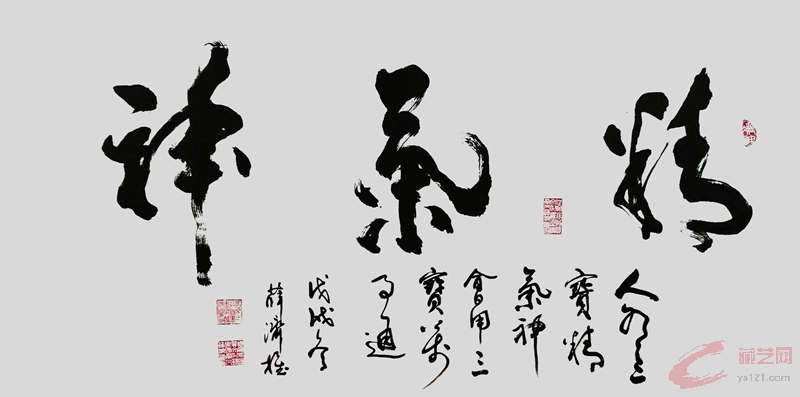 精氣神
人有三
寶精
氣神
會用三
寶萬
事通
戊戌冬
薛濟桂
藏艺网
ys121.com